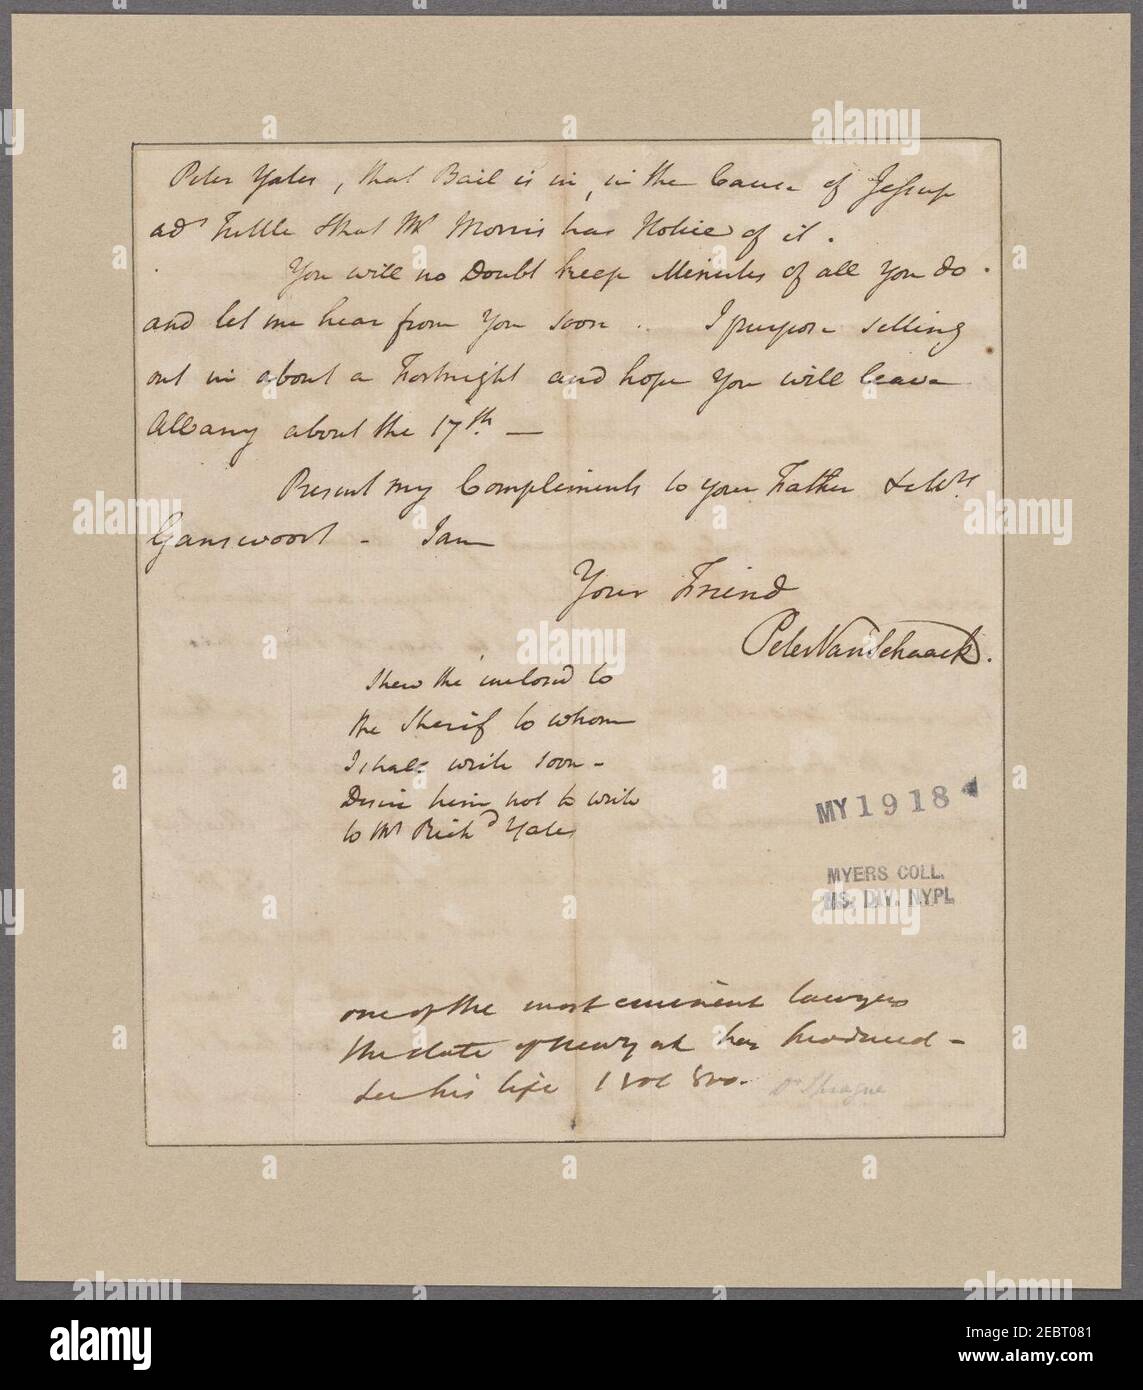 Peter Yates, that Bail is in, in the Cause of Jessup
ads Tuttle & that Mr. Morris has Notice of it.
You will no Doubt keep Minutes of all you do.
and let me hear from you soon. I purpose setting
out in about a Fortnight and hope you will leave
Albany about the 17th. —
Present my Compliments to your Father &
Ganswoort - I am
Your Friend
Peter Van Schaack.
Shew the inclosed to
the Sherif to whom
I shall write soon -
Desire him not to write
to Mr Richd Yates
MY 1918
MYERS COLL.
MS. DIV. NYPL
one of the most eminent lawyers
the state of New york has produced -
see his life 1 vol 8vo. Dr Sprague
alamy
Image ID: 2EBT081
www.alamy.com